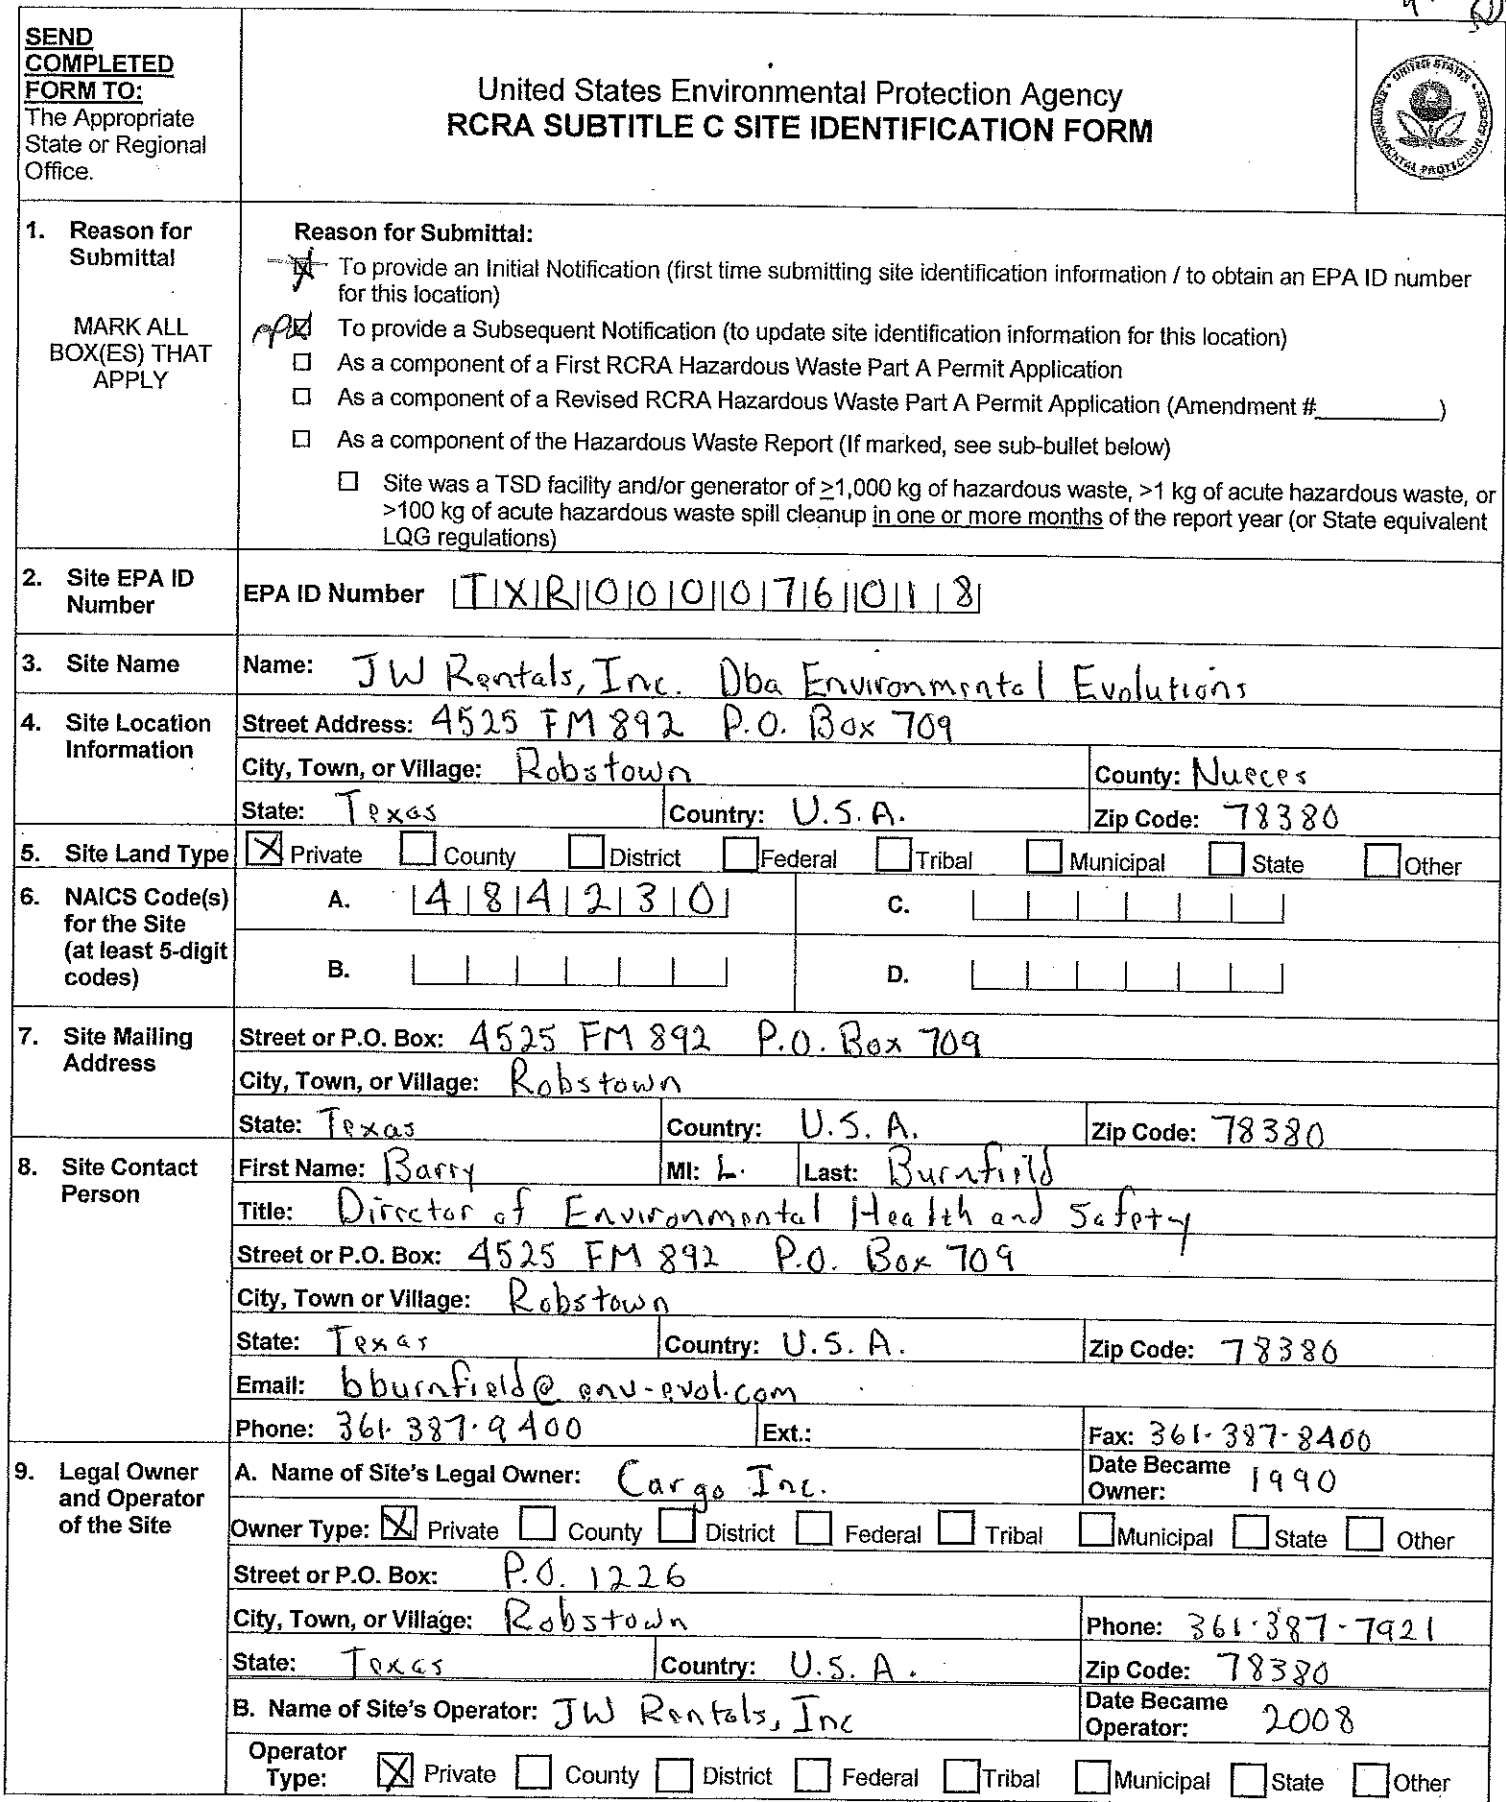 SEND
COMPLETED
FORM TO:
The Appropriate
State or Regional
Office.
United States Environmental Protection Agency
RCRA SUBTITLE C SITE IDENTIFICATION FORM
1. Reason for Submittal
MARK ALL BOX(ES) THAT APPLY
Reason for Submittal:
To provide an Initial Notification (first time submitting site identification information / to obtain an EPA ID number
for this location)
To provide a Subsequent Notification (to update site identification information for this location)
As a component of a First RCRA Hazardous Waste Part A Permit Application
As a component of a Revised RCRA Hazardous Waste Part A Permit Application (Amendment #________)
As a component of the Hazardous Waste Report (If marked, see sub-bullet below)
Site was a TSD facility and/or generator of ≥1,000 kg of hazardous waste, >1 kg of acute hazardous waste, or
>100 kg of acute hazardous waste spill cleanup in one or more months of the report year (or State equivalent
LQG regulations)
2. Site EPA ID Number
EPA ID Number TXR000076018
3. Site Name
Name: JW Rentals, Inc. Dba Environmental Evolutions
4. Site Location Information
Street Address: 4525 FM 892 P.O. Box 709
City, Town, or Village: Robstown County: Nueces
State: Texas Country: U.S.A. Zip Code: 78380
5. Site Land Type Private County District Federal Tribal Municipal State Other
6. NAICS Code(s) for the Site (at least 5-digit codes)
A. 484230 C.
B. D.
7. Site Mailing Address
Street or P.O. Box: 4525 FM 892 P.O. Box 709
City, Town, or Village: Robstown
State: Texas Country: U.S.A. Zip Code: 78380
8. Site Contact Person
First Name: Barry MI: L. Last: Burnfield
Title: Director of Environmental Health and Safety
Street or P.O. Box: 4525 FM 892 P.O. Box 709
City, Town or Village: Robstown
State: Texas Country: U.S.A. Zip Code: 78380
Email: bburnfield@env-evol.com
Phone: 361-387-9400 Ext.: Fax: 361-387-8400
9. Legal Owner and Operator of the Site
A. Name of Site's Legal Owner: Cargo Inc. Date Became Owner: 1990
Owner Type: Private County District Federal Tribal Municipal State Other
Street or P.O. Box: P.O. 1226
City, Town, or Village: Robstown Phone: 361-387-7921
State: Texas Country: U.S.A. Zip Code: 78380
B. Name of Site's Operator: JW Rentals, Inc Date Became Operator: 2008
Operator Type: Private County District Federal Tribal Municipal State Other